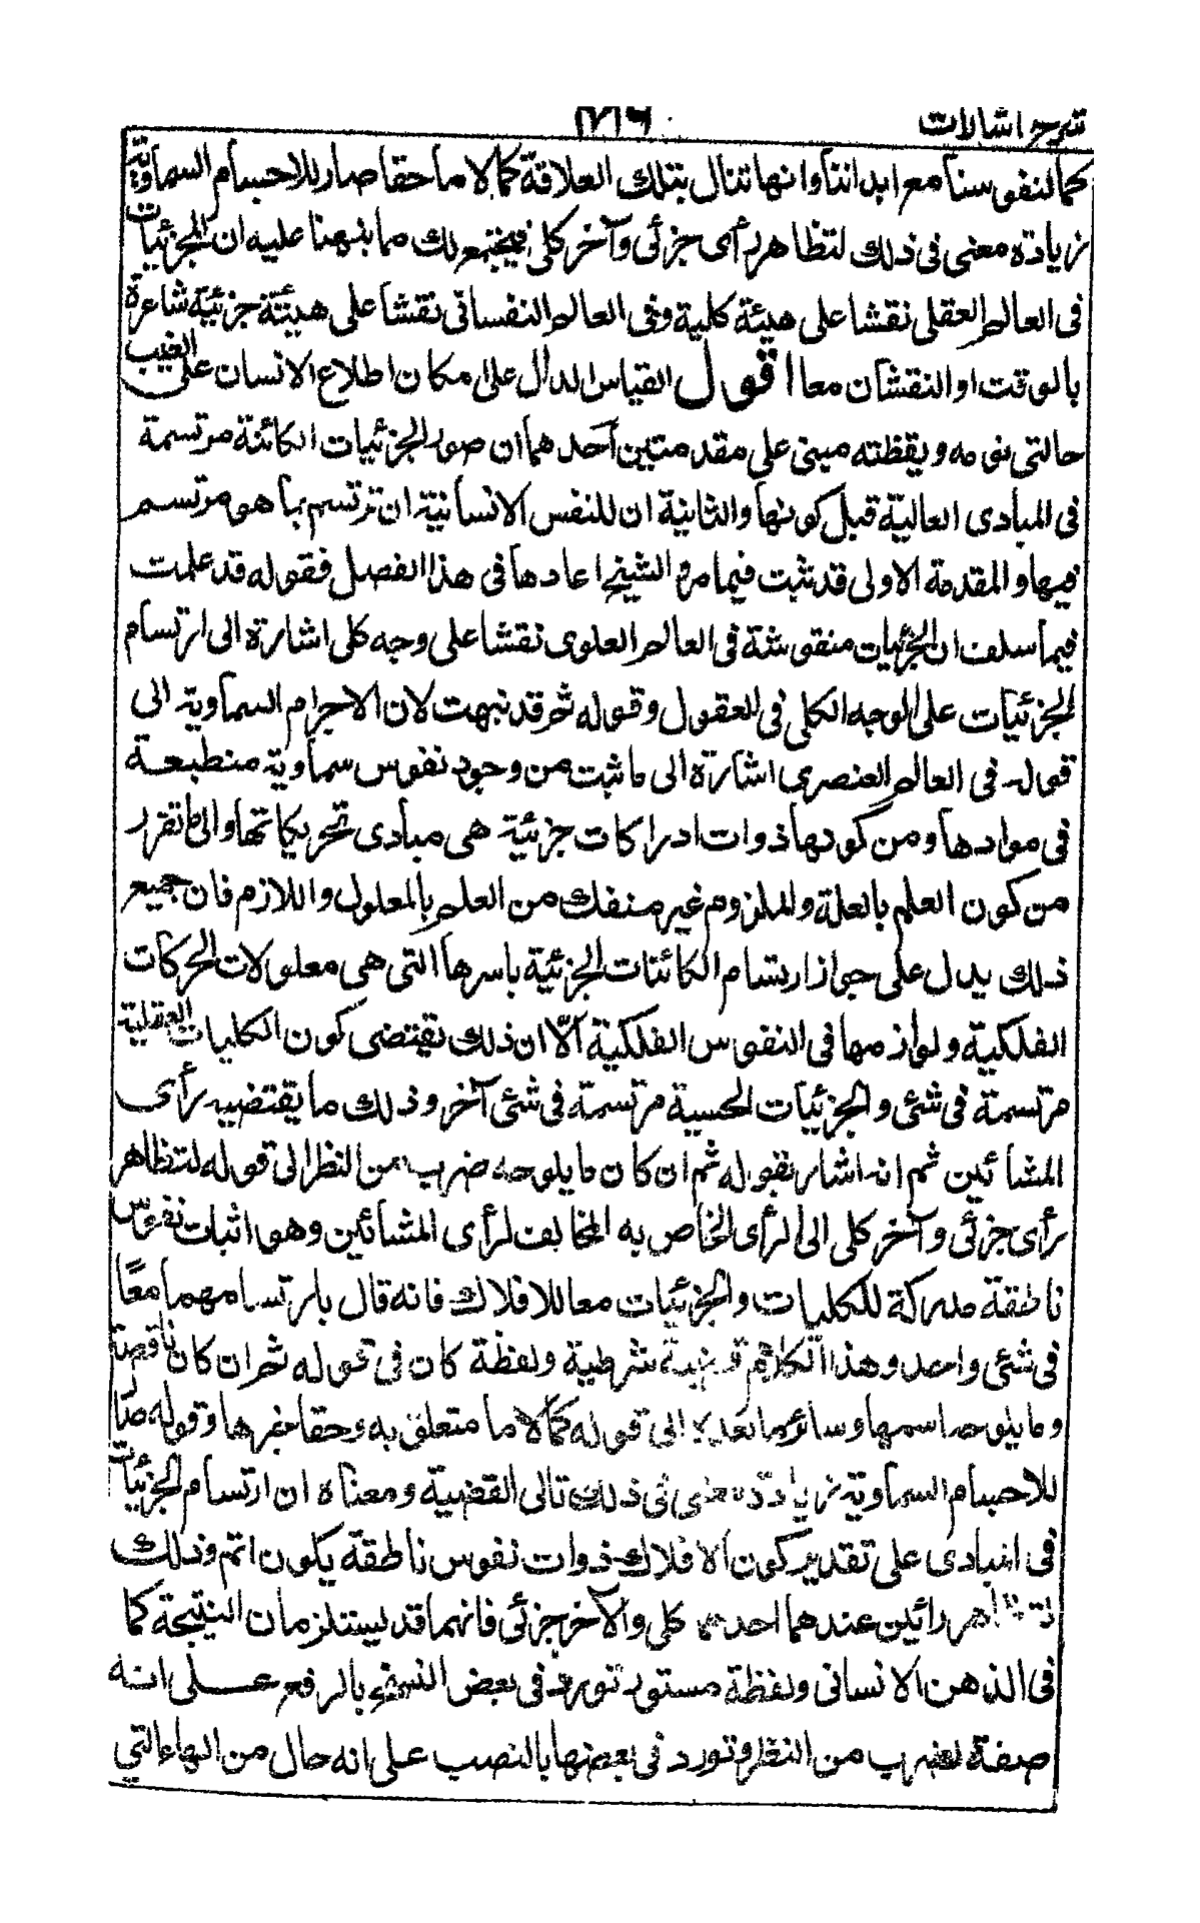 شرح اشارات
كما لنفوسنا مع ابداننا وانها تنال بتلك العلاقة كمالا ما حقا صار للاجسام السماوية
زيادة معنى فى ذلك لتظاهر رأى جزئى وآخر كلى فيجتمع لك مما نبهنا عليه ان للجزئيات
فى العالم العقلى نقشا على هيئة كلية وفى العالم النفسانى نقشا على هيئة جزئية شاعرة
بالوقت او النقشان معا اقول القياس الدال على امكان اطلاع الانسان على الغيب
حالتى نومه ويقظته مبنى على مقدمتين احدهما ان صور الجزئيات الكائنة مرتسمة
فى المبادى العالية قبل كونها والثانية ان للنفس الانسانية ان ترتسم بما هو مرتسم
فيها والمقدمة الاولى قد ثبت فيما مر والشيخ اعادها فى هذا الفصل فقوله قد علمت
فيما سلف ان الجزئيات منقوشة فى العالم العلوى نقشا على وجه كلى اشارة الى ارتسام
الجزئيات على الوجه الكلى فى العقول وقوله ثم قد نبهت لان الاجرام السماوية الى
قوله فى العالم العنصرى اشارة الى ما ثبت من وجود نفوس سماوية منطبعة
فى موادها ومن كونها ذوات ادراكات جزئية هى مبادى تحريكاتها والى ما تقرر
من كون العلم بالعلة والملزوم غير منفك من العلم بالمعلول واللازم فان جميع
ذلك يدل على جواز ارتسام الكائنات الجزئية باسرها التى هى معلولات الحركات
الفلكية ولوازمها فى النفوس الفلكية الّا ان ذلك يقتضى كون الكليات العقلية
مرتسمة فى شئ والجزئيات الحسية مرتسمة فى شئ آخر وذلك ما يقتضيه رأى
المشائين ثم انه اشار بقوله ثم ان كان ما يلوحه ضرب من النظر الى قوله لتظاهر
رأى جزئى وآخر كلى الى الرأى الخاص به المخالف لرأى المشائين وهو اثبات نفوس
ناطقة مدركة للكليات والجزئيات معا للافلاك فانه قال بارتسامهما معًا
فى شئ واحد وهذا الكلام قضية شرطية ولفظة كان فى قوله ثم ان كان ناقصة
وما يلوحه اسمها وسائر ما بعده الى قوله كمالا ما متعلق به وحقا خبرها وقوله صار
للاجسام السماوية زيادة معنى فى ذلك تالى القضية ومعناه ان ارتسام الجزئيات
فى المبادى على تقدير كون الافلاك ذوات نفوس ناطقة يكون اتم وذلك
لتظاهر رائين عندهما احدهما كلى والآخر جزئى فانهما قد يستلزمان النتيجة كما
فى الذهن الانسانى ولفظة مستور تورد فى بعض النسخ بالرفع على انه
صفة لضرب من النظر وتورد فى بعضها بالنصب على انه حال من الهاء التى